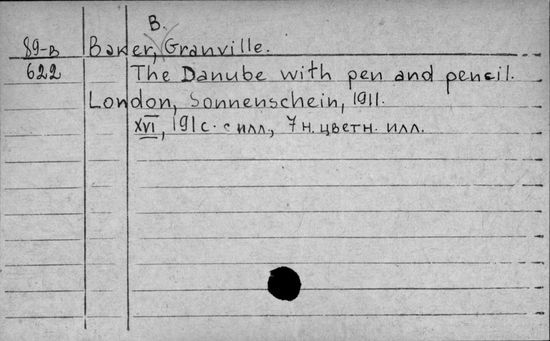 B.
89-в Baker, Granville.
622 The Danube with pen and pencil.
London, Sonnenschein, 1911.
XVI, 191 с. с илл., 7 н. цветн. илл.